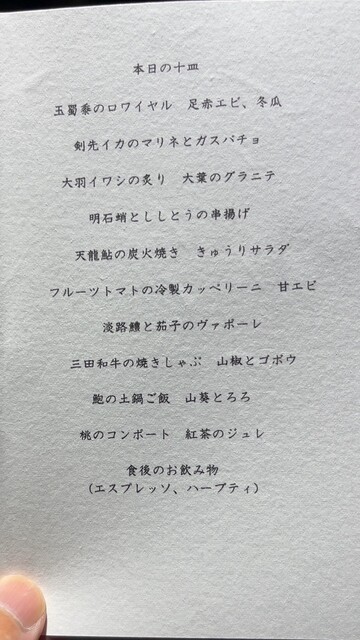 本日の十皿
玉蜀黍のロワイヤル　足赤エビ、冬瓜
剣先イカのマリネとガスパチョ
大羽イワシの炙り　大葉のグラニテ
明石蛸とししとうの串揚げ
天龍鮎の炭火焼き　きゅうりサラダ
フルーツトマトの冷製カッペリーニ　甘エビ
淡路鱧と茄子のヴァポーレ
三田和牛の焼きしゃぶ　山椒とゴボウ
鮑の土鍋ご飯　山葵とろろ
桃のコンポート　紅茶のジュレ
食後のお飲み物
（エスプレッソ、ハーブティ）